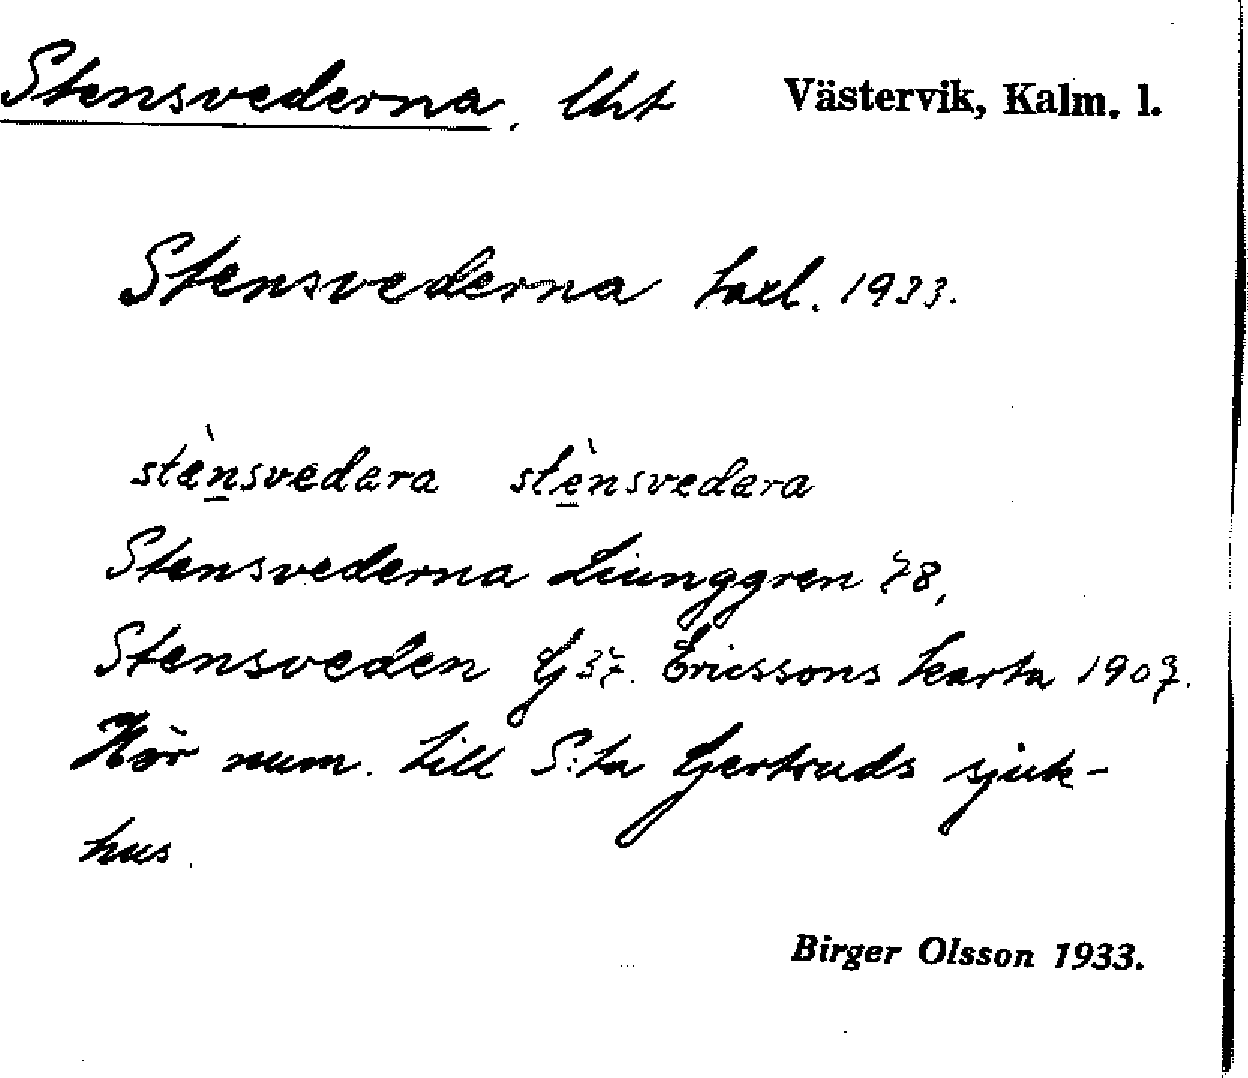 Stensvederna, lht Västervik, Kalm. l.
Stensvederna taxl. 1933.
stèn̲svedera stè̲nsvedera
Stensvederna Liunggren 78,
Stensveden G 37. Ericssons karta 1907.
Hör num. till S:ta Gertruds sjuk-
hus.
Birger Olsson 1933.